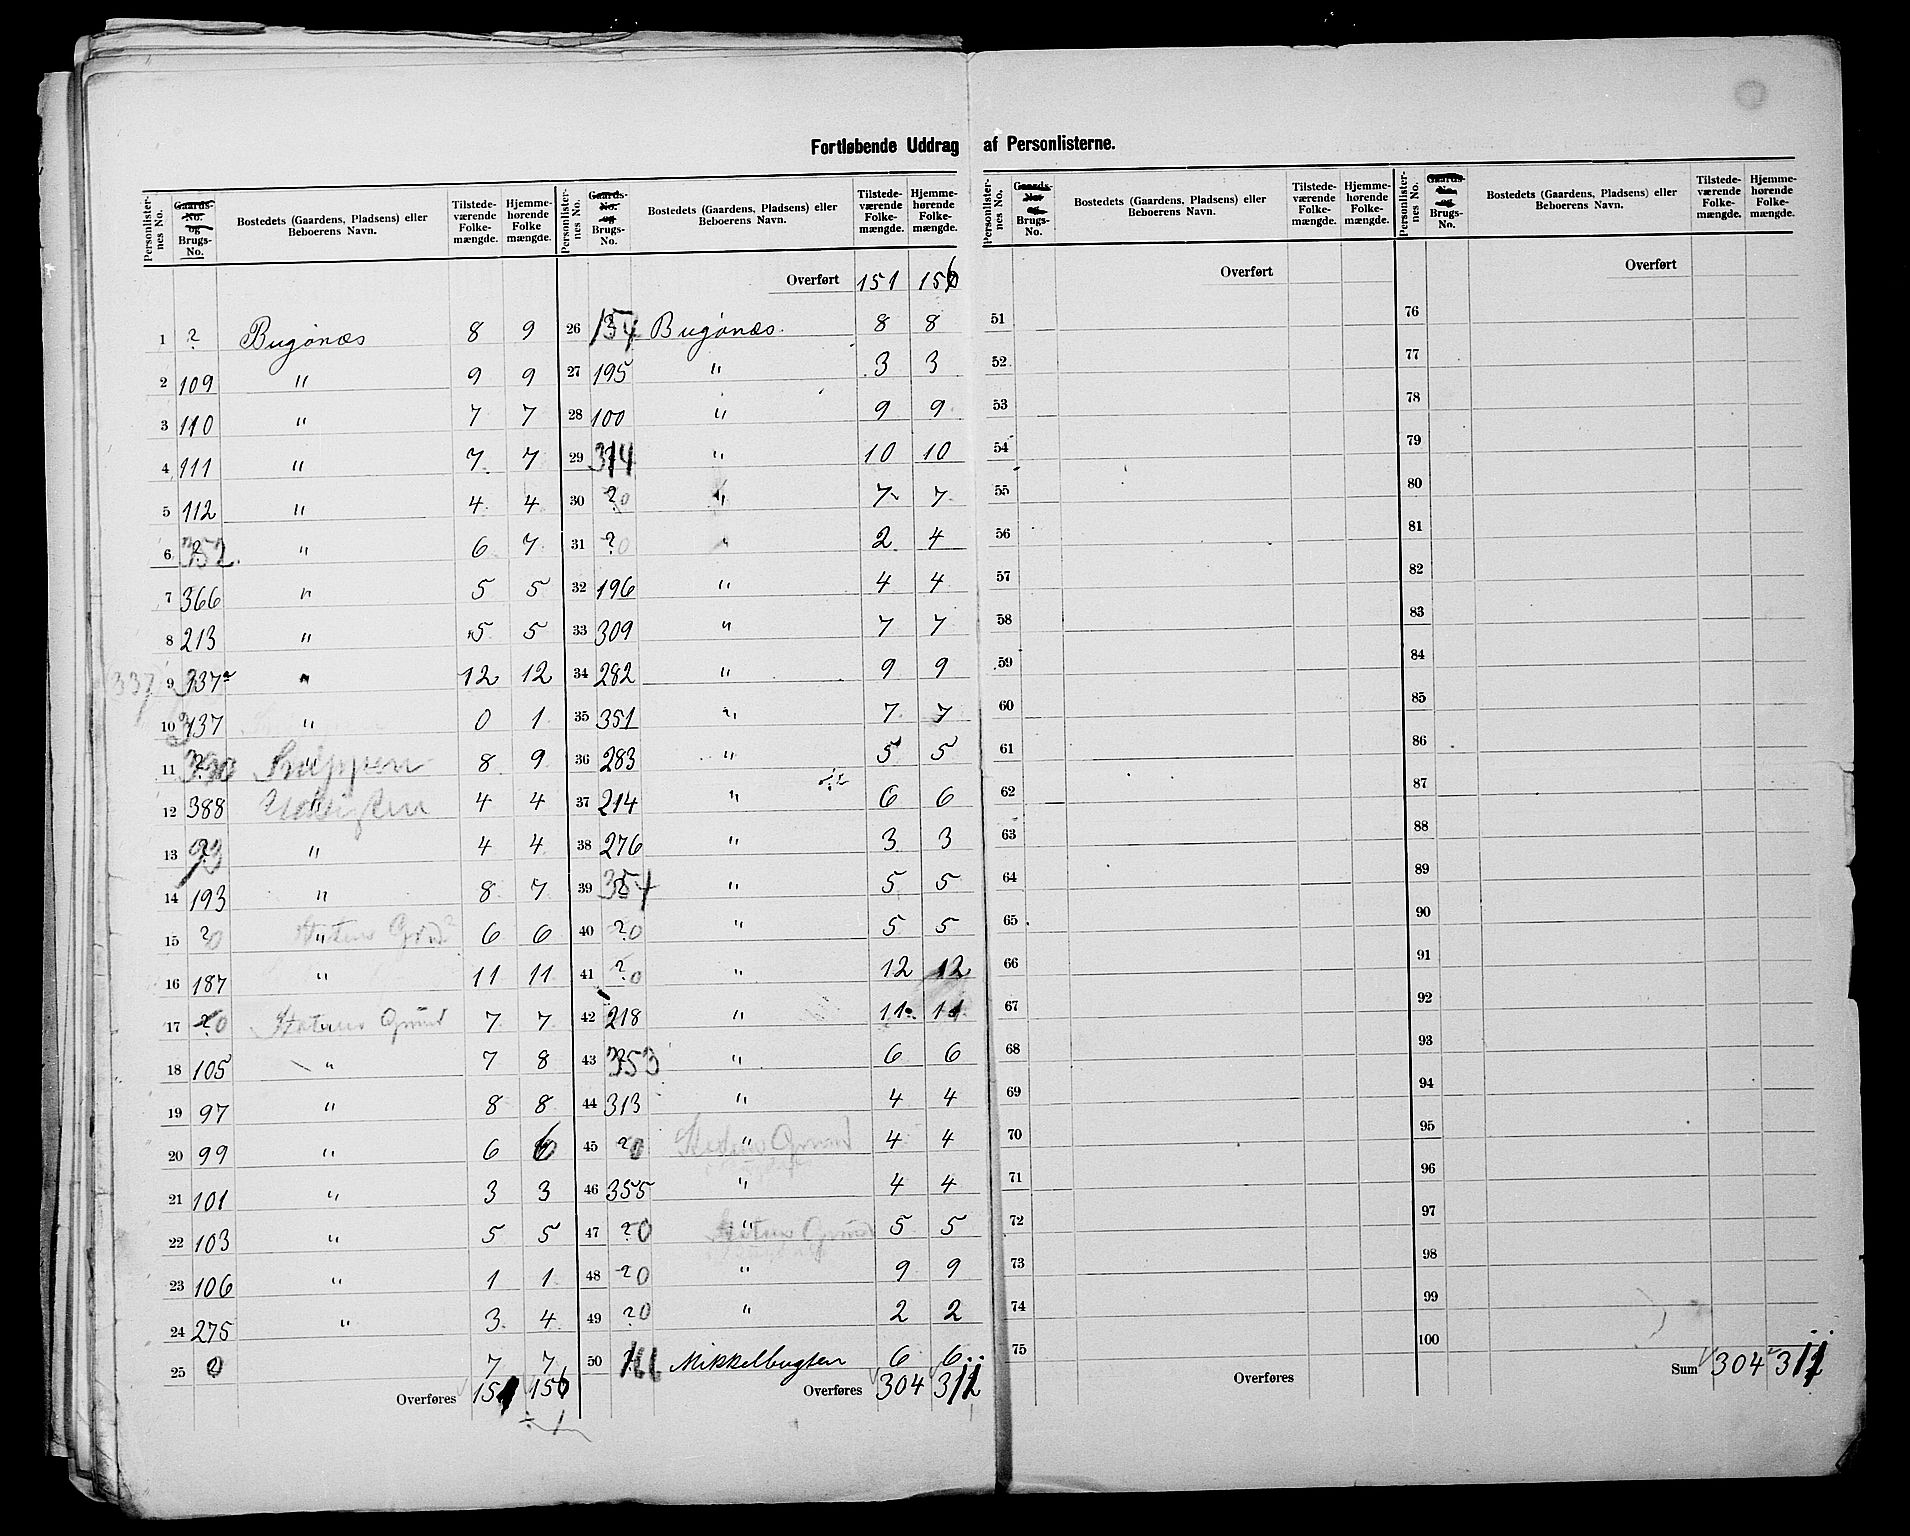 Fortløbende Uddrag af Personlisterne.
Personlister-nes No. | Gaards-No. og Brugs-No. | Bostedets (Gaardens, Pladsens) eller Beboerens Navn. | Tilstede-værende Folke-mængde. | Hjemme-hørende Folke mængde.
1 ? Bugönæs 8 9
2 109 " 9 9
3 110 " 7 7
4 111 " 7 7
5 112 " 4 4
6 352 " 6 7
7 366 " 5 5
8 213 " 5 5
(337) 9 337 " 12 12
10 337 " 0 1
11 " 8 9
12 388 " 4 4
13 " 4 4
14 193 " 8 7
15 ?0 " Statens Grund 6 6
16 187 " 11 11
17 ?0 Statens Grund 7 7
18 105 " 7 8
19 97 " 8 8
20 99 " 6 6
21 101 " 3 3
22 103 " 5 5
23 106 " 1 1
24 275 " 3 4
25 0 7 7
Overføres 151 156
÷ 1
Personlister-nes No. | Gaards-No. og Brugs-No. | Bostedets (Gaardens, Pladsens) eller Beboerens Navn. | Tilstede-værende Folke-mængde. | Hjemme-hørende Folke-mængde.
Overført 151 156
26 Bugönæs. 8 8
27 195 " 3 3
28 100 " 9 9
29 314 " 10 10
30 ?0 " 7 7
31 ?0 " 2 4
32 196 " 4 4
33 309 " 7 7
34 282 " 9 9
35 351 " 7 7
36 283 " 5 5
37 214 " 6 6
38 276 " 3 3
39 354 " 5 5
40 ?0 " 5 5
41 ?0 " 12 12
42 218 " 11 11
43 353 " 6 6
44 313 " 4 4
45 ?0 " Statens Grund 4 4
46 355 " 4 4
47 ?0 " Statens Grund 5 5
48 ?0 " 9 9
49 ?0 " 2 2
50 166 Mikkelbugten 6 6
Overføres 304 311
Personlister-nes No. | Gaards-No. og Brugs-No. | Bostedets (Gaardens, Pladsens) eller Beboerens Navn. | Tilstede-værende Folke-mængde. | Hjemme-hørende Folke-mængde.
Overført
51
52
53
54
55
56
57
58
59
60
61
62
63
64
65
66
67
68
69
70
71
72
73
74
75
Overføres
Personlister-nes No. | Gaards-No. og Brugs-No. | Bostedets (Gaardens, Pladsens) eller Beboerens Navn. | Tilstede-værende Folke-mængde. | Hjemme-hørende Folke-mængde.
Overført
76
77
78
79
80
81
82
83
84
85
86
87
88
89
90
91
92
93
94
95
96
97
98
99
100
Sum 304 311